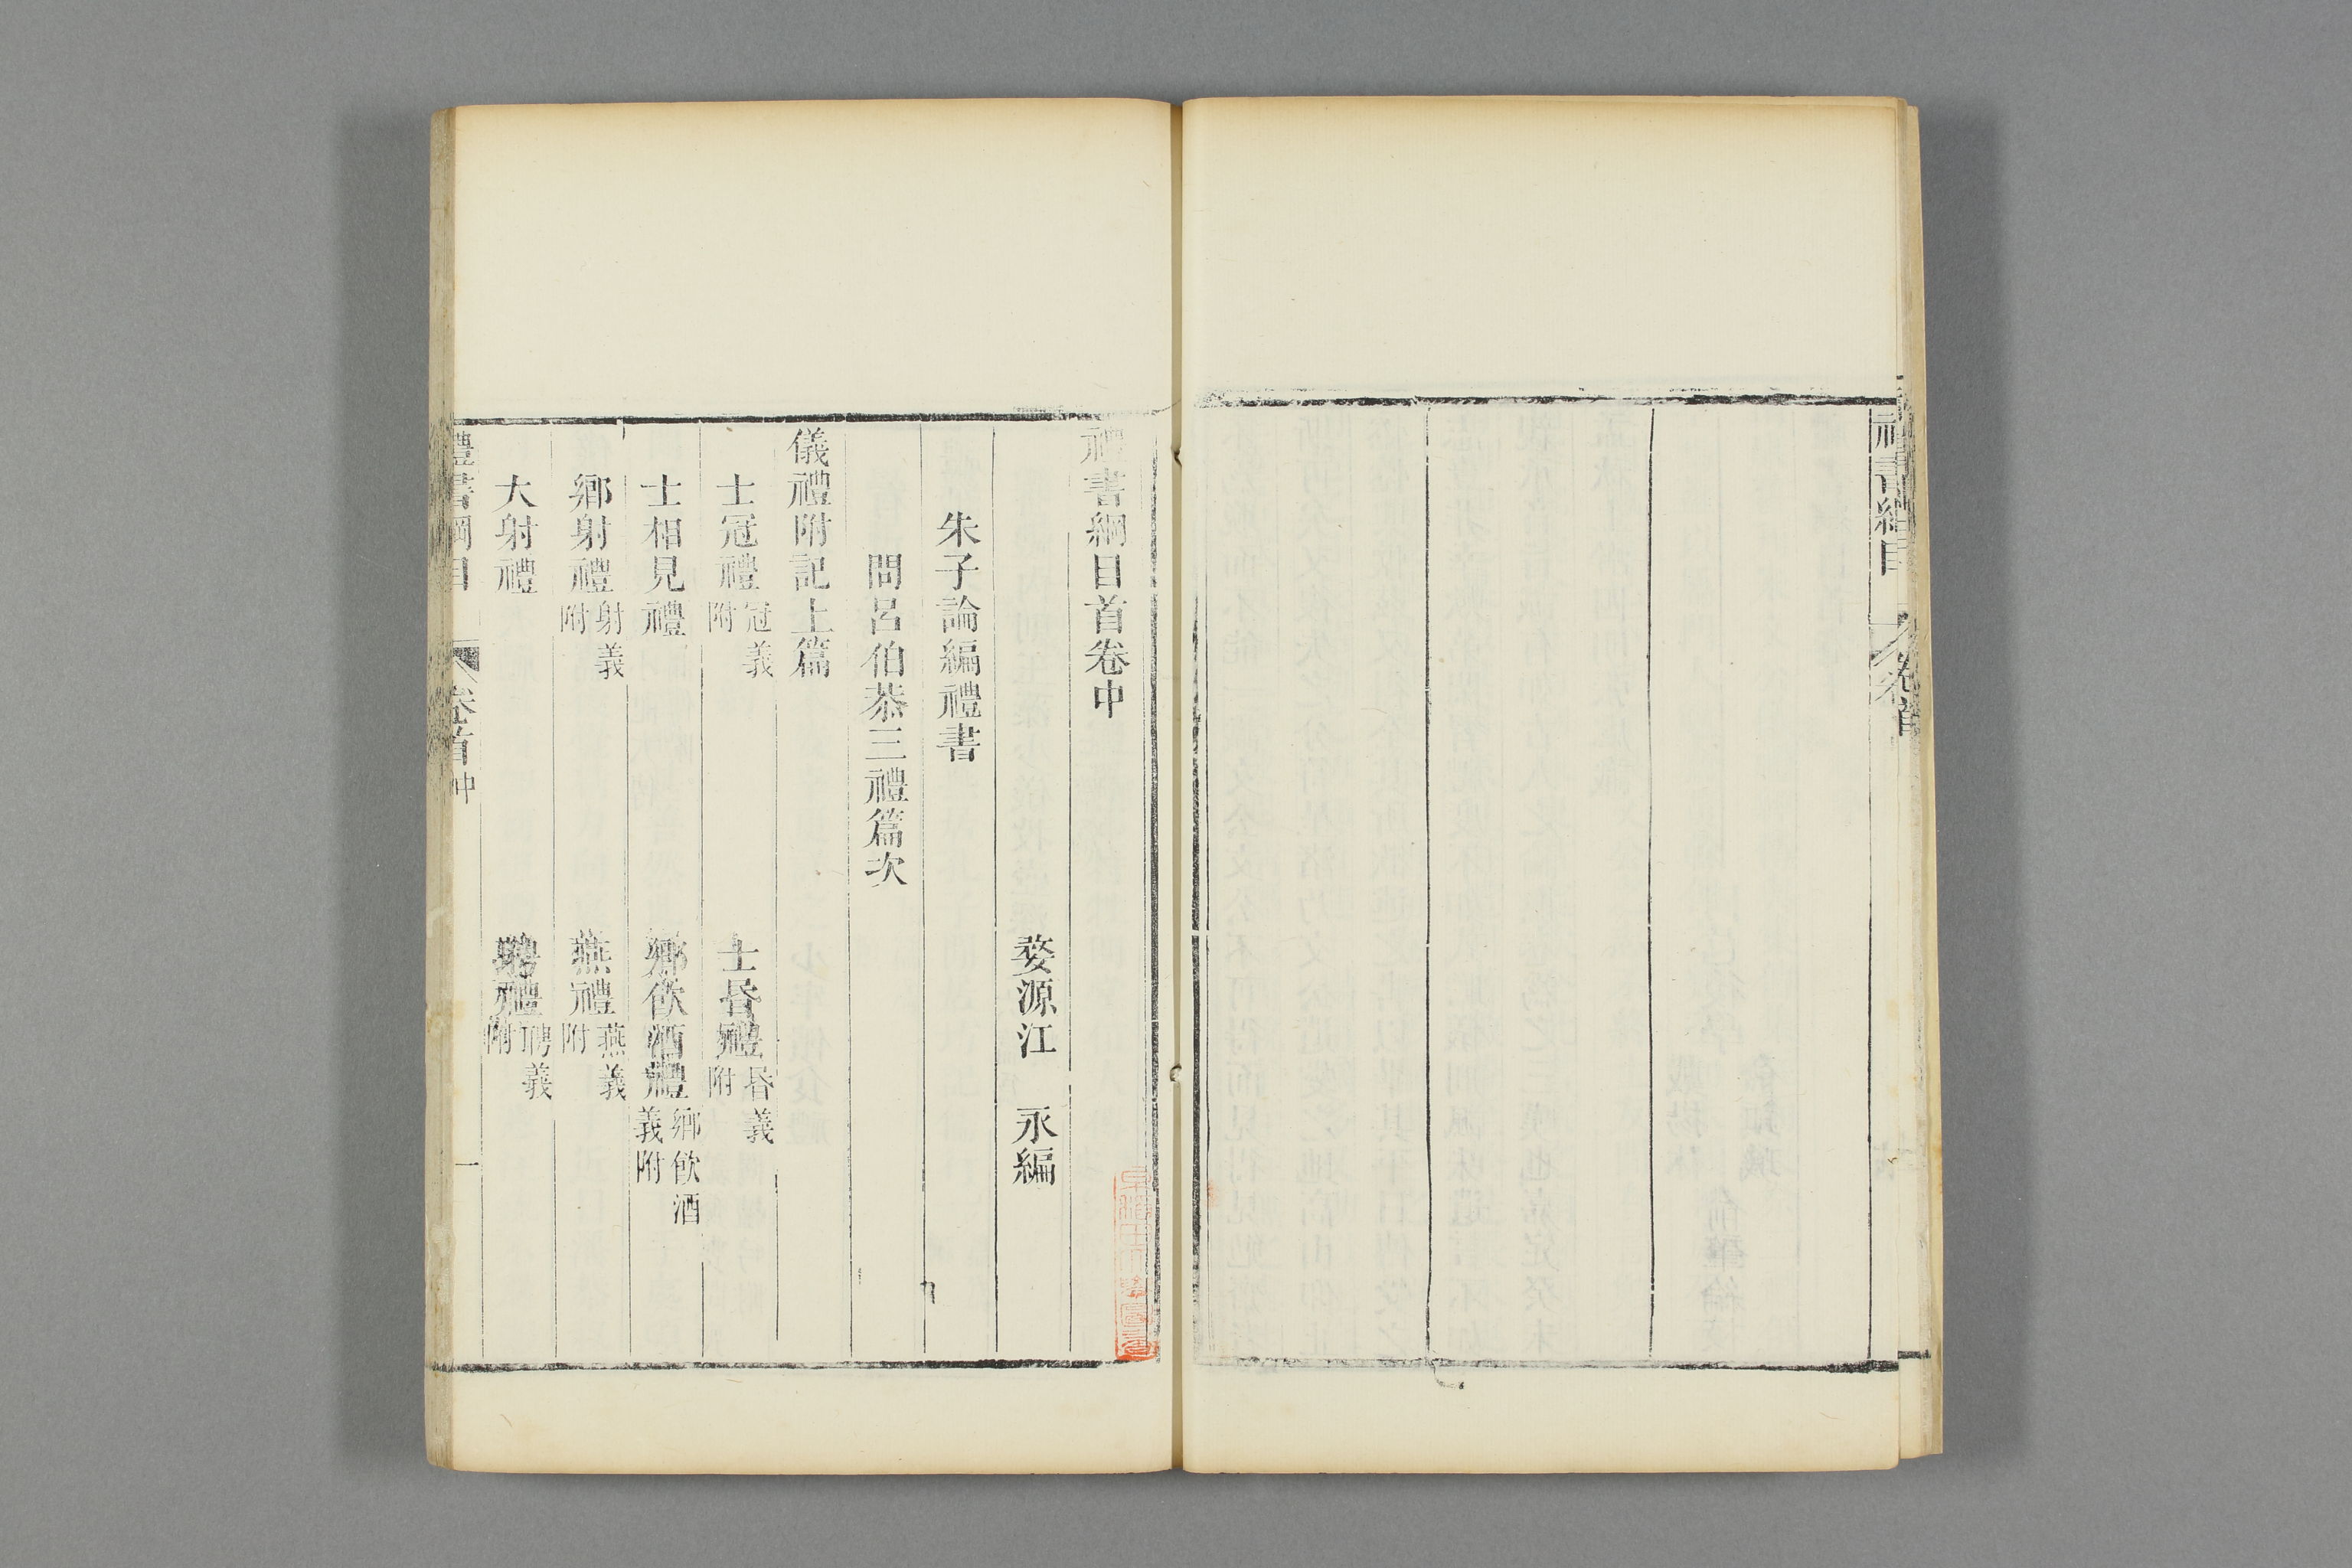 禮書綱目
卷首
禮書綱目首卷中
婺源江 永編
朱子論編禮書
問呂伯恭三禮篇次
儀禮附記上篇
士冠禮冠義附 士昏禮昏義附
士相見禮 鄉飲酒禮鄉飲酒義附
鄉射禮射義附 燕禮燕義附
大射禮 聘禮聘義附
禮書綱目 卷首中 一